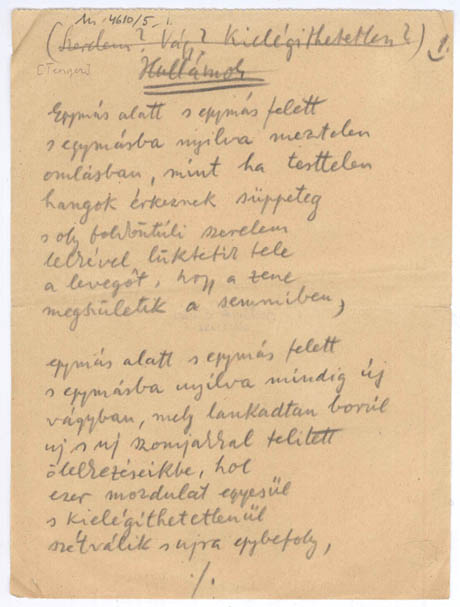 M. 4610/5-1.
(Szerelem? Vágy? Kielégíthetetlen?) 1.
[Tenger]
Hullámok
Egymás alatt s egymás felett
s egymásba nyilva meztelen
omlásban, mint ha testtelen
hangok érkeznek süppeteg
s oly földöntúli szerelem
lelkével lüktetik tele
a levegőt, hogy a zene
megszületik a semmiben,
egymás alatt s egymás felett
s egymásba nyilva mindig új
vágyban, mely lankadtan borúl
uj s uj szomjakkal telitett
ölelkezéseikbe, hol
ezer mozdulat egyesül
s kielégíthetetlenül
szétválik s ujra egybefoly,
./.